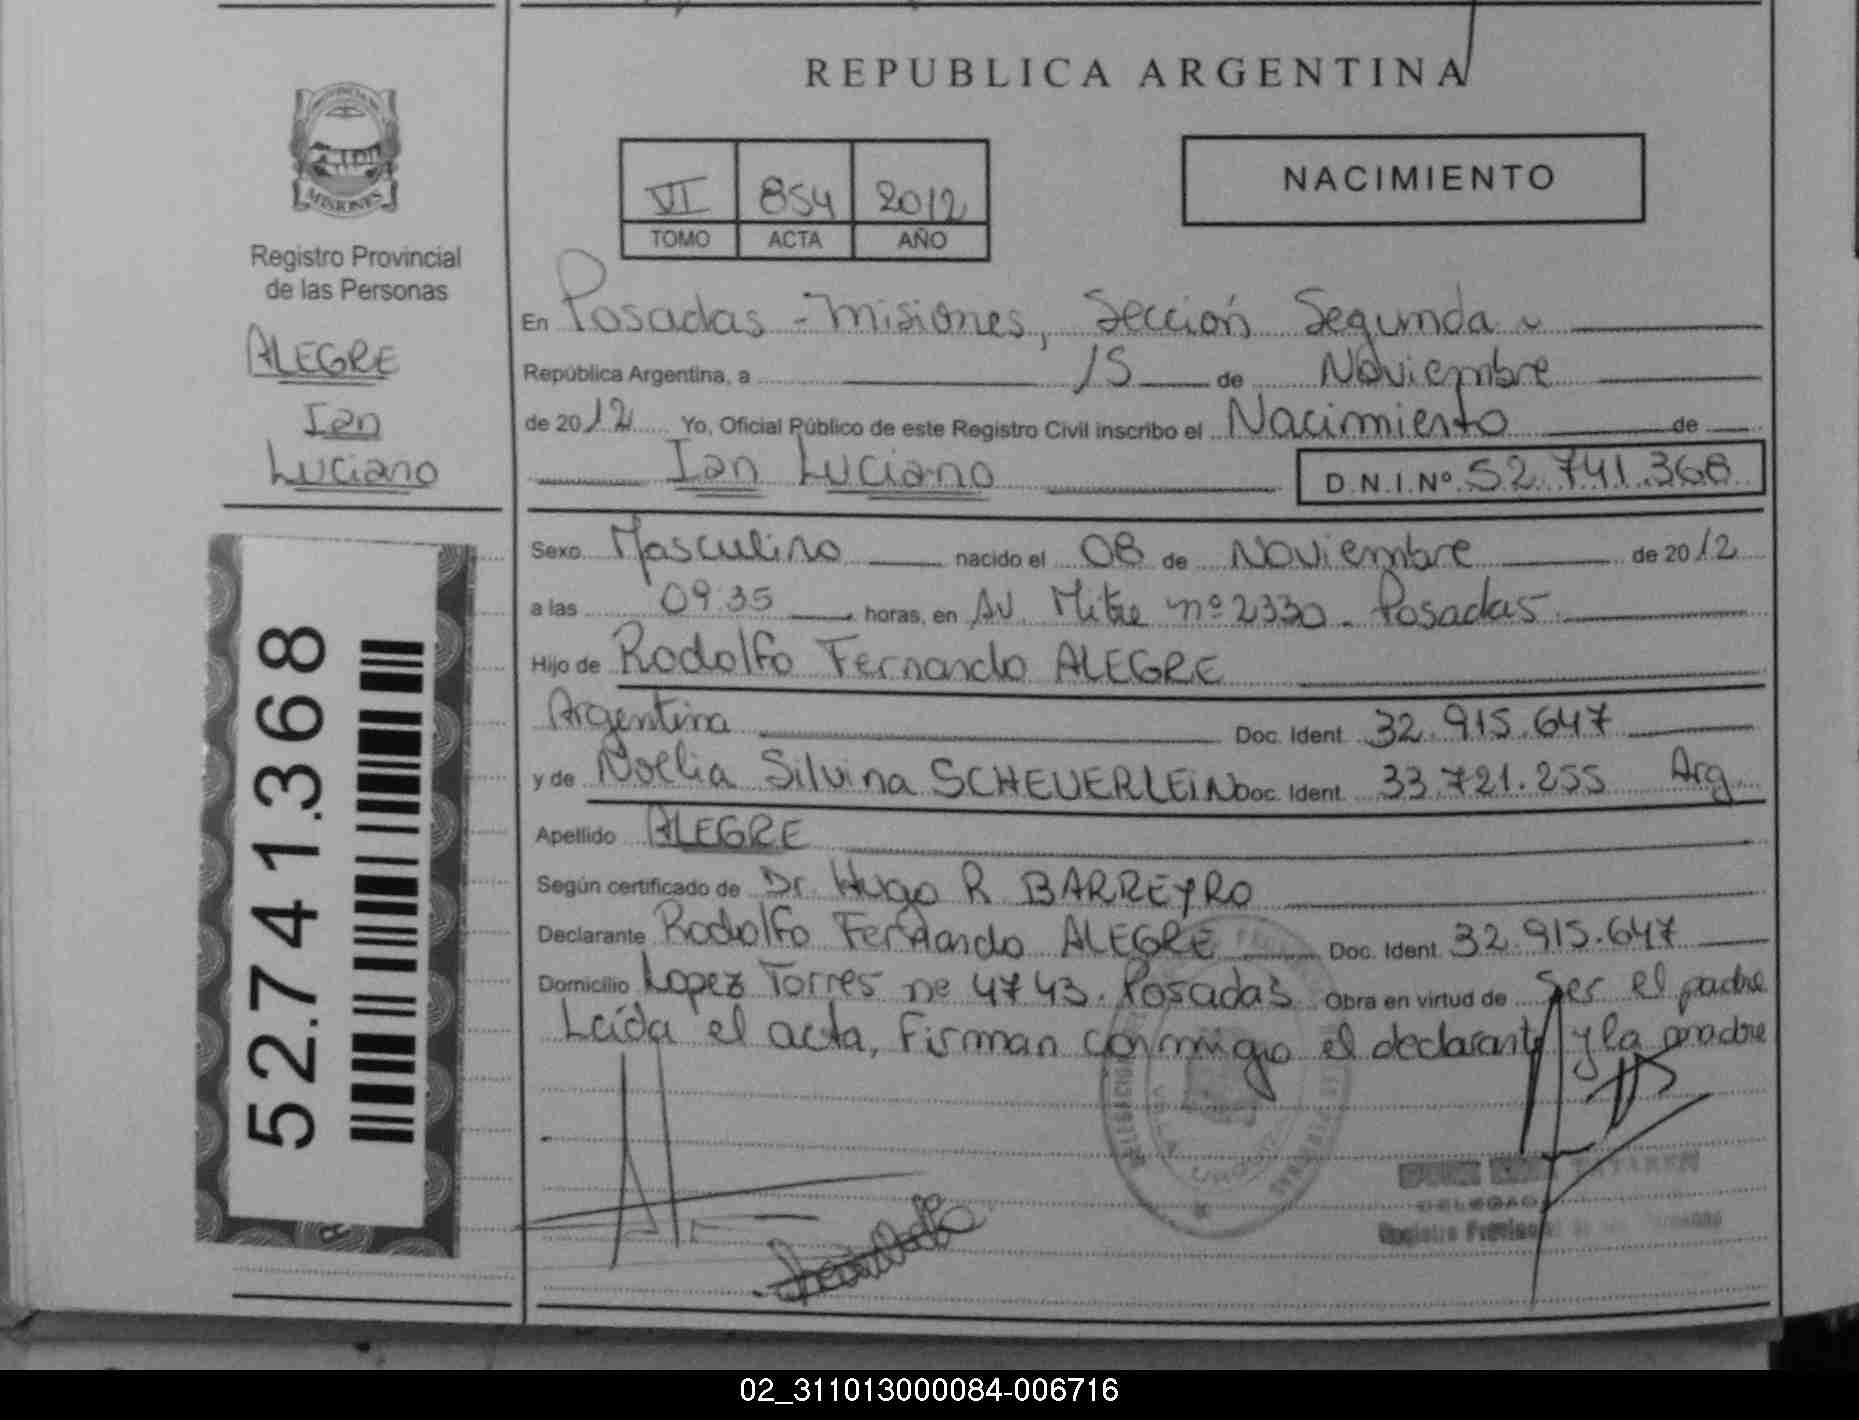 REPUBLICA ARGENTINA
PROVINCIA DE
MISIONES
VI 854 2012
TOMO ACTA AÑO
NACIMIENTO
Registro Provincial
de las Personas
ALEGRE
Ian
Luciano
52.741.368
En Posadas - Misiones, Sección Segunda
República Argentina, a 15 de Noviembre
de 2012 Yo, Oficial Público de este Registro Civil inscribo el Nacimiento de
Ian Luciano D.N.I.Nº 52.741.368
Sexo Masculino nacido el 08 de Noviembre de 2012
a las 09:35 horas, en Av. Mitre nº 2330. Posadas
Hijo de Rodolfo Fernando ALEGRE
Argentina Doc. Ident. 32.915.647
y de Noelia Silvina SCHEUERLEIN Doc. Ident. 33.721.255 Arg.
Apellido ALEGRE
Según certificado de Dr. Hugo R BARREYRO
Declarante Rodolfo Fernando ALEGRE Doc. Ident. 32.915.647
Domicilio Lopez Torres nº 4743. Posadas Obra en virtud de Ser el padre
Leída el acta, Firman conmigo el declarante y la madre
Registro Provincial de las Personas
02_311013000084-006716